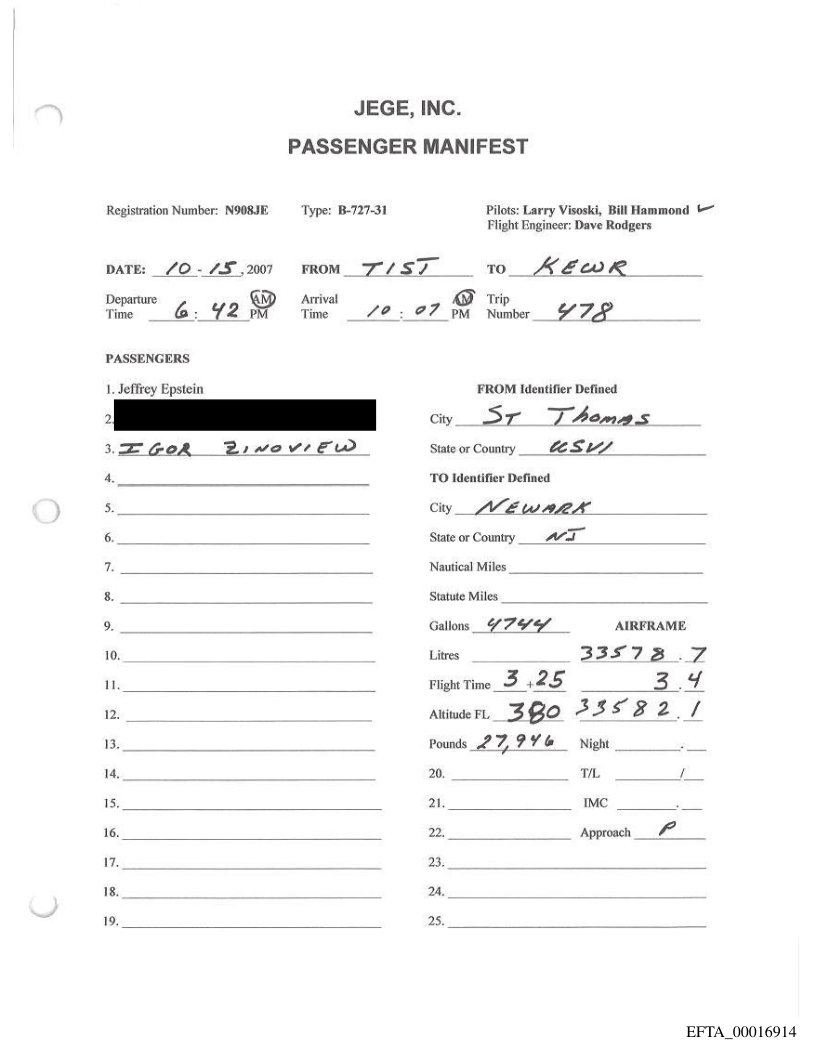 JEGE, INC.
PASSENGER MANIFEST
Registration Number: N908JE Type: B-727-31 Pilots: Larry Visoski, Bill Hammond ✓
Flight Engineer: Dave Rodgers
DATE: 10-15, 2007 FROM TIST TO KEWR
Departure Time 6:42 AM PM Arrival Time 10:07 AM PM Trip Number 478
PASSENGERS
1. Jeffrey Epstein FROM Identifier Defined
2. City ST Thomas
3. IGOR ZINOVIEW State or Country USVI
4. TO Identifier Defined
5. City NEWARK
6. State or Country NJ
7. Nautical Miles
8. Statute Miles
9. Gallons 4744 AIRFRAME
10. Litres 33578.7
11. Flight Time 3+25 3.4
12. Altitude FL 380 33582.1
13. Pounds 27,946 Night .
14. 20. T/L /
15. 21. IMC .
16. 22. Approach P
17. 23.
18. 24.
19. 25.
EFTA_00016914